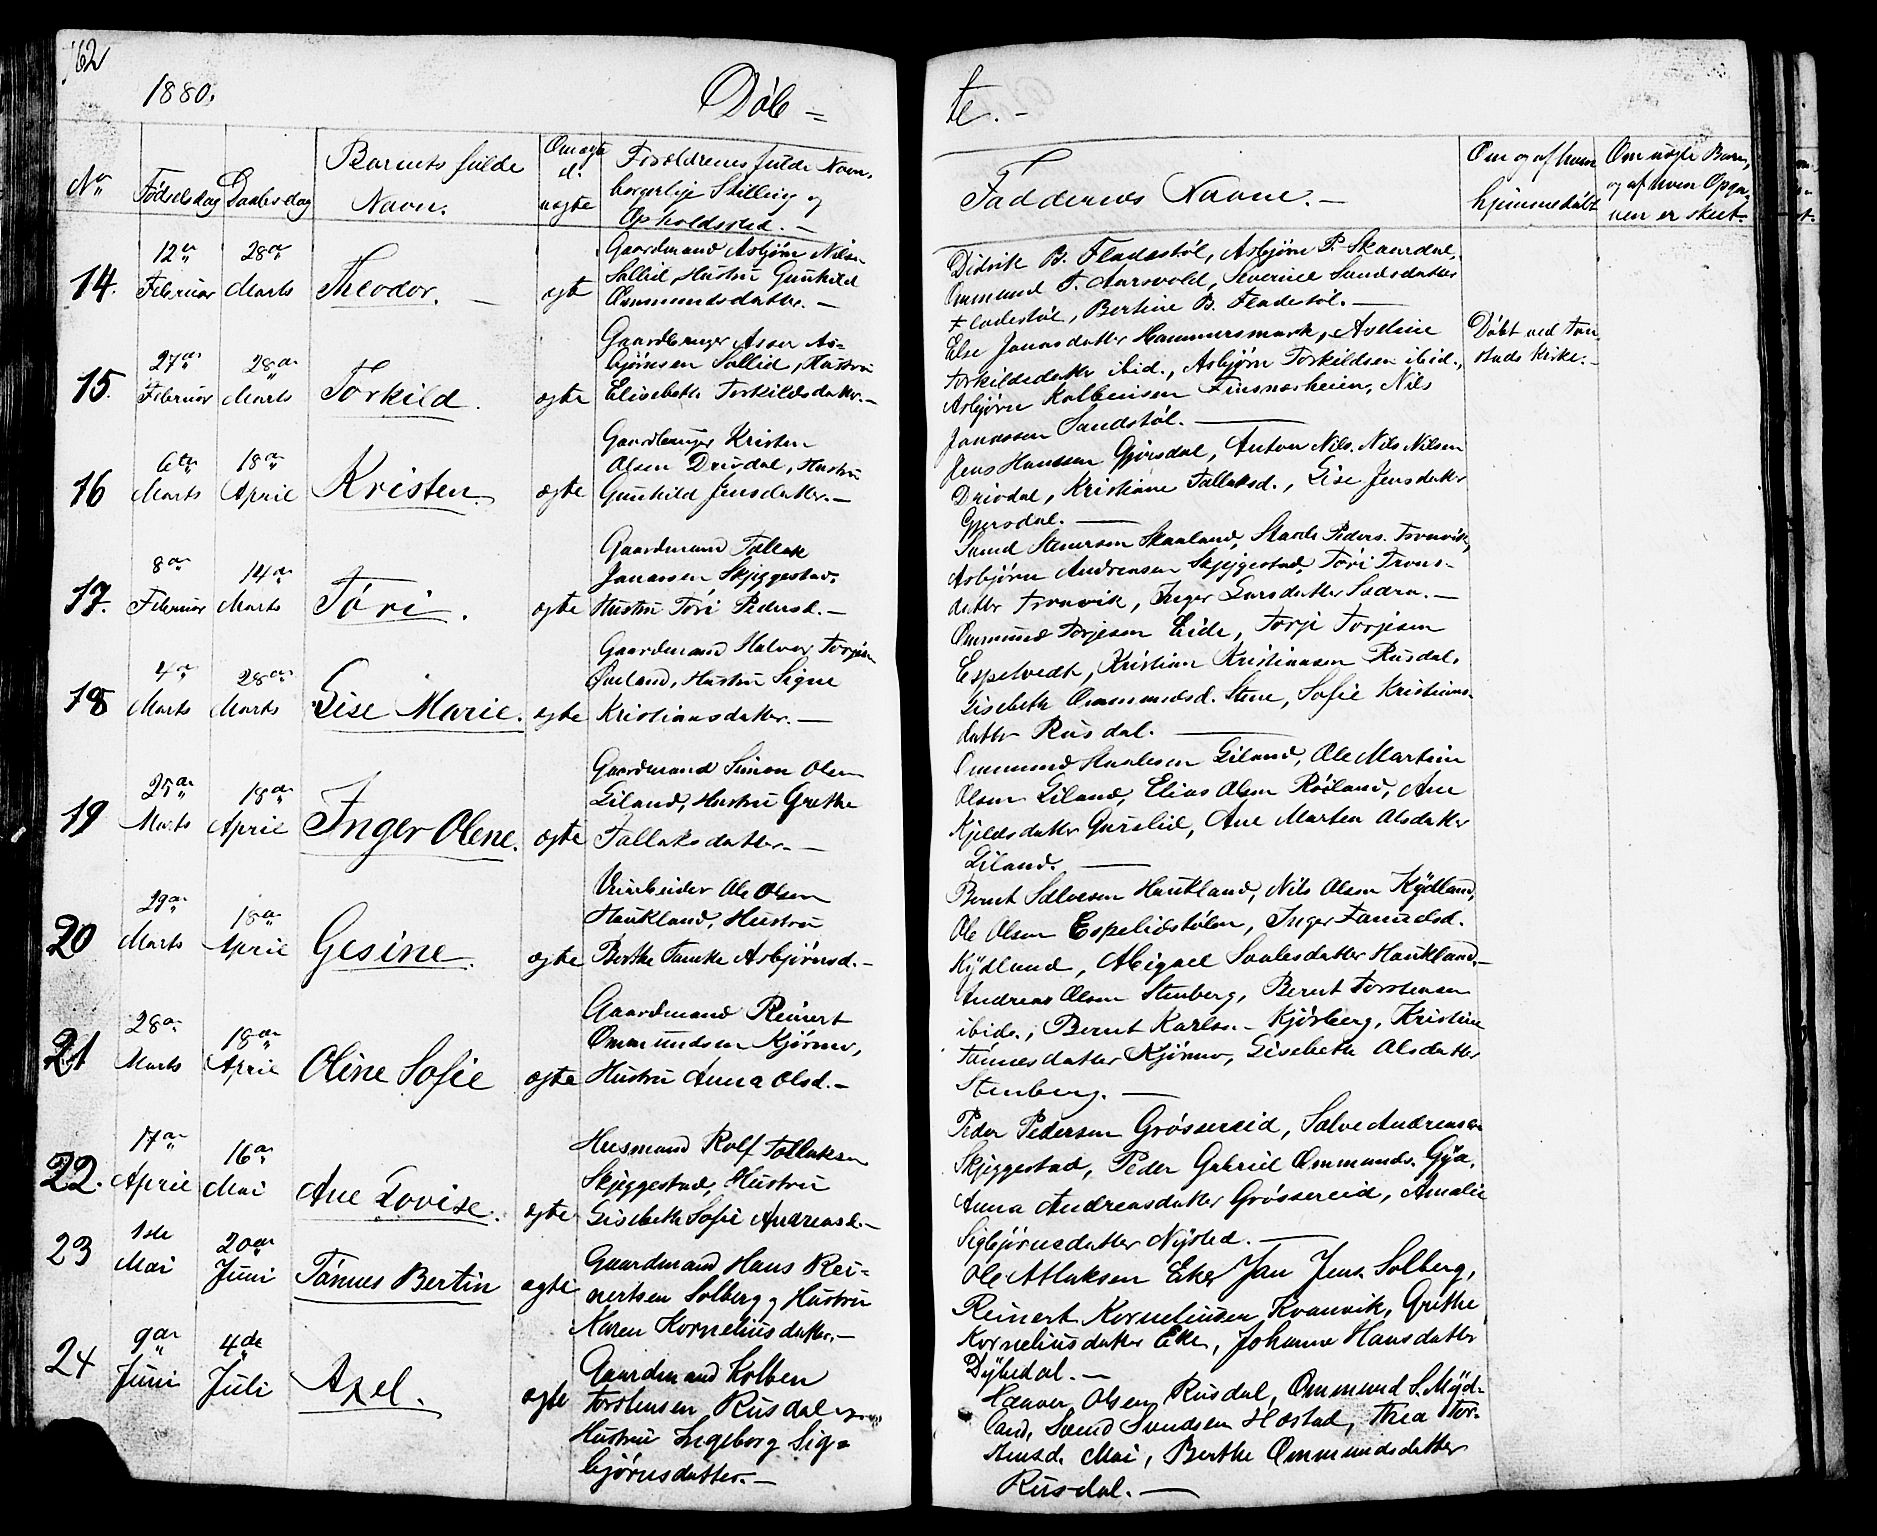 162
1880.
Døb =
te. -
No
Fødselsdag
Daabsdag
Barnets fulde
Navn.
Om ægte
el.
uægte
Forældrenes fulde Navn,
borgerlige Stilling og
Opholdssted. -
Faddernes Navne. -
Om og af hvem
hjemmedøbt
og af hvem
nen er skeet.
14.
12te
Februar
28de
Marts
Theodor. -
ægte
Gaardmand Asbjørn Nilsen
Sollid, Hustru Gunhild
Ommundsdatter. -
Didrik B. Fladestøl, Asbjørn P. Skaardal,
Ommund T. Aarsvold, Severine
Fladestøl, Bertine B. Fladestøl. -
15.
27de
Februar
28de
Marts
Torkild.
ægte
Gaardbruger Asser As=
bjørnsen Sollid, Hustru
Elisebeth Torkildsdatter. -
Else Jonasdatter Hammersmark, Aveline
Torkildsdatter ibid., Asbjørn Torkildsen ibid.,
Asbjørn Kolbensen Finsnæsheien, Nils
Jonassen Sandstøl. -
Døbt ved Ton
stads Kirke. -
16
6te
Marts
18de
April
Kristen
ægte
Gaardbruger Kristen
Olsen Drivdal, Hustru
Gunhild Jensdatter. -
Jens Hansen Gjersdal, Anton Nils. Nils Nilsen
Drivdal, Kristiane Tallaksd., Lise Jensdatter
Gjersdal. -
17.
8de
Februar
14de
Marts
Tøri.
ægte
Gaardmand Tallak
Jonassen Skjeggestad,
Hustru Tøri Pedersd. -
Svend Stenersen Skaaland, Peders. Tronvik,
Asbjørn Andreasen Skjeggestad, Tøri Trons-
datter Tronvik, Inger Larsdatter
18
4de
Marts
28de
Marts
Lise Marie.
ægte
Gaardmand Halvor Torjesen
Øveland, Hustru Signe
Kristiansdatter. -
Ommund Torjesen Eide, Torje Torjesen
Espetvedt, Kristian Kristiansen Rusdal,
Lisebeth Ommundsd. Stene, Sofie Kristians-
datter Rusdal. -
19
25de
Marts
18de
April
Inger Olene.
ægte
Gaardmand Simon Olsen
Eiland, Hustru Grethe
Tallaksdatter. -
Ommund Eiland, Ole Martin
Olsen Eiland, Elias Olsen Røiland, Ane
Kjeldsdatter Gurslid, Ane Marten Olsdatter
Eiland. -
20
29de
Marts
18de
April
Gesine.
ægte
Veiarbeider Ole Olsen
Haukland, Hustru
Berthe Asbjørnsd. -
Bernt Salvesen Haukland, Nils Olsen Kydland,
Ole Olsen Espelidstølen, Inger
Kydland, Abigael Haukland. -
21
28de
Marts
18de
April
Oline Sofie
ægte
Gaardmand Reinert
Ommundsen Kjørmo,
Hustru Anna Olsd. -
Andreas Olsen Stenberg, Bernt Torstensen
ibid., Bernt Karlsen Kjørberg, Kristine
Tønnesdatter Kjørmo, Lisebeth Olsdatter
Stenberg. -
22.
17de
April
16de
Mai
Ane Lovise.
ægte
Husmand Rolf Tallaksen
Skjeggestad, Hustru
Lisebeth Sofie Andreasd. -
Peder Pedersen Grøssereid, Salve Andreasen
Skjeggestad, Peder Gabriel Ommunds. Gya,
Anna Andreasdatter Grøssereid, Amalie
Sigbjørnsdatter Nysted. -
23
1ste
Mai
20de
Juni
Tønnes Bertin
ægte
Gaardmand Hans Rei=
nertsen Solberg, Hustru
Karen Korneliusdatter. -
Ole Atlaksen Eker, Jan Jens. Solberg,
Reinert Korneliusen Kvanvik, Grethe
Korneliusdatter Eke, Johanne Hansdatter
Dybedal. -
24
9de
Juni
4de
Juli
Axel.
ægte
Gaardmand Kolben
Torstensen Rusdal
Hustru Ingeborg Sig=
bjørnsdatter. -
Olsen Rusdal, Ommund S. Myd-
land, Svend Svendsen Hæstad, Thea Tor-
stensd. Moi, Berthe Ommundsdatter
Rusdal. -